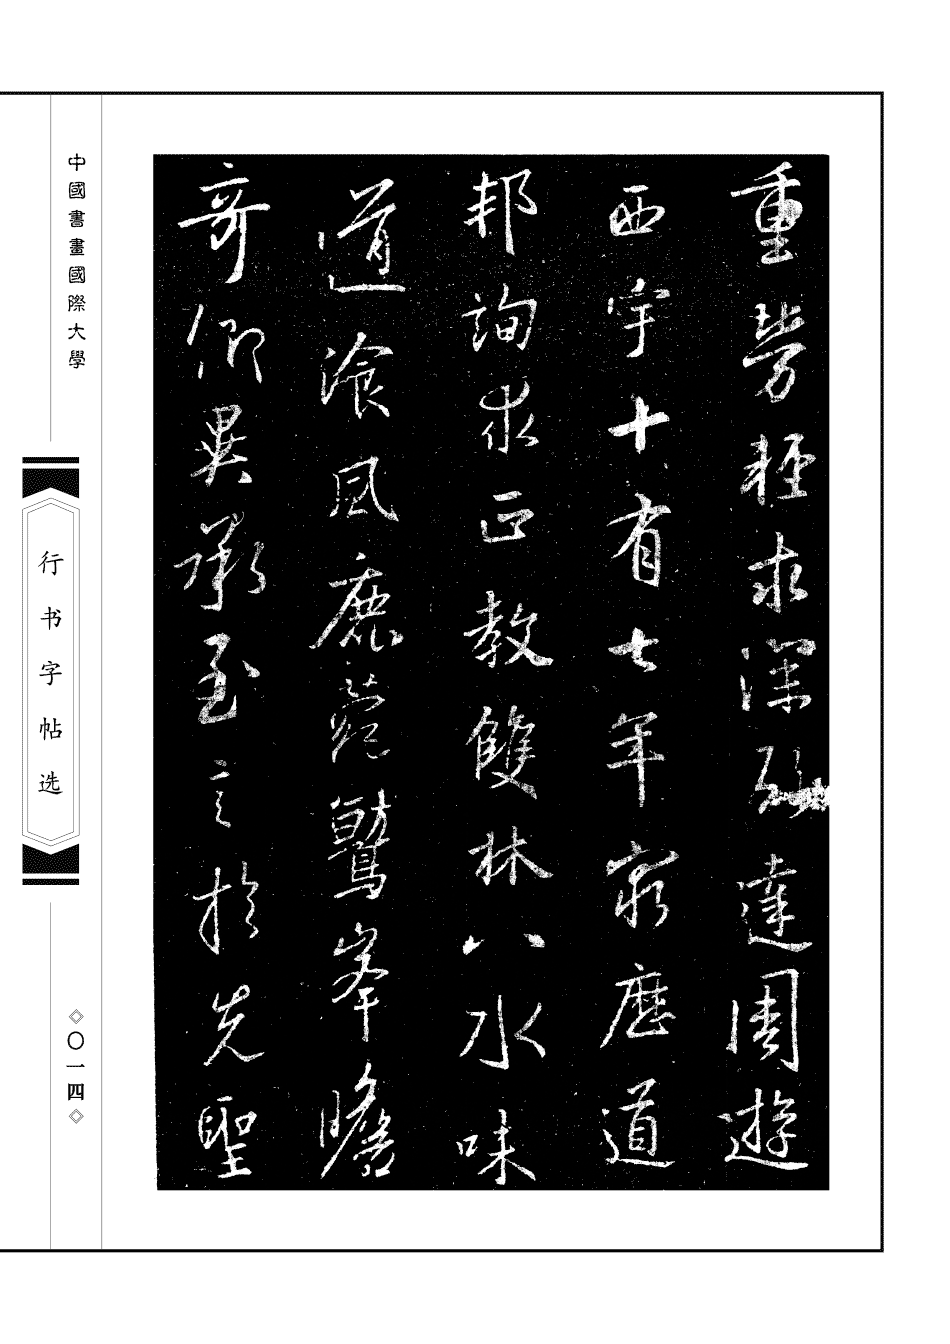 重勞輕求深願達周遊
西宇十有七年窮歷道
邦詢求正教雙林八水味
道飡風鹿菀鷲峯瞻
奇仰異承至言於先聖
中國書畫國際大學
行书字帖选
◇〇一四◇